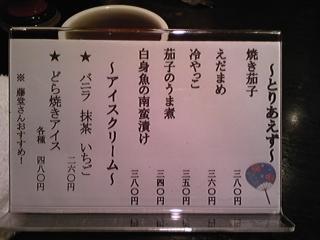 〜とりあえず〜
焼き茄子 三八〇円
えだまめ 三六〇円
冷やっこ 三五〇円
茄子のうま煮 三四〇円
白身魚の南蛮漬け 三八〇円
〜アイスクリーム〜
★ バニラ 抹茶 いちご 二六〇円
★ どら焼きアイス 各種 四八〇円
※ 藤堂さんおすすめ！